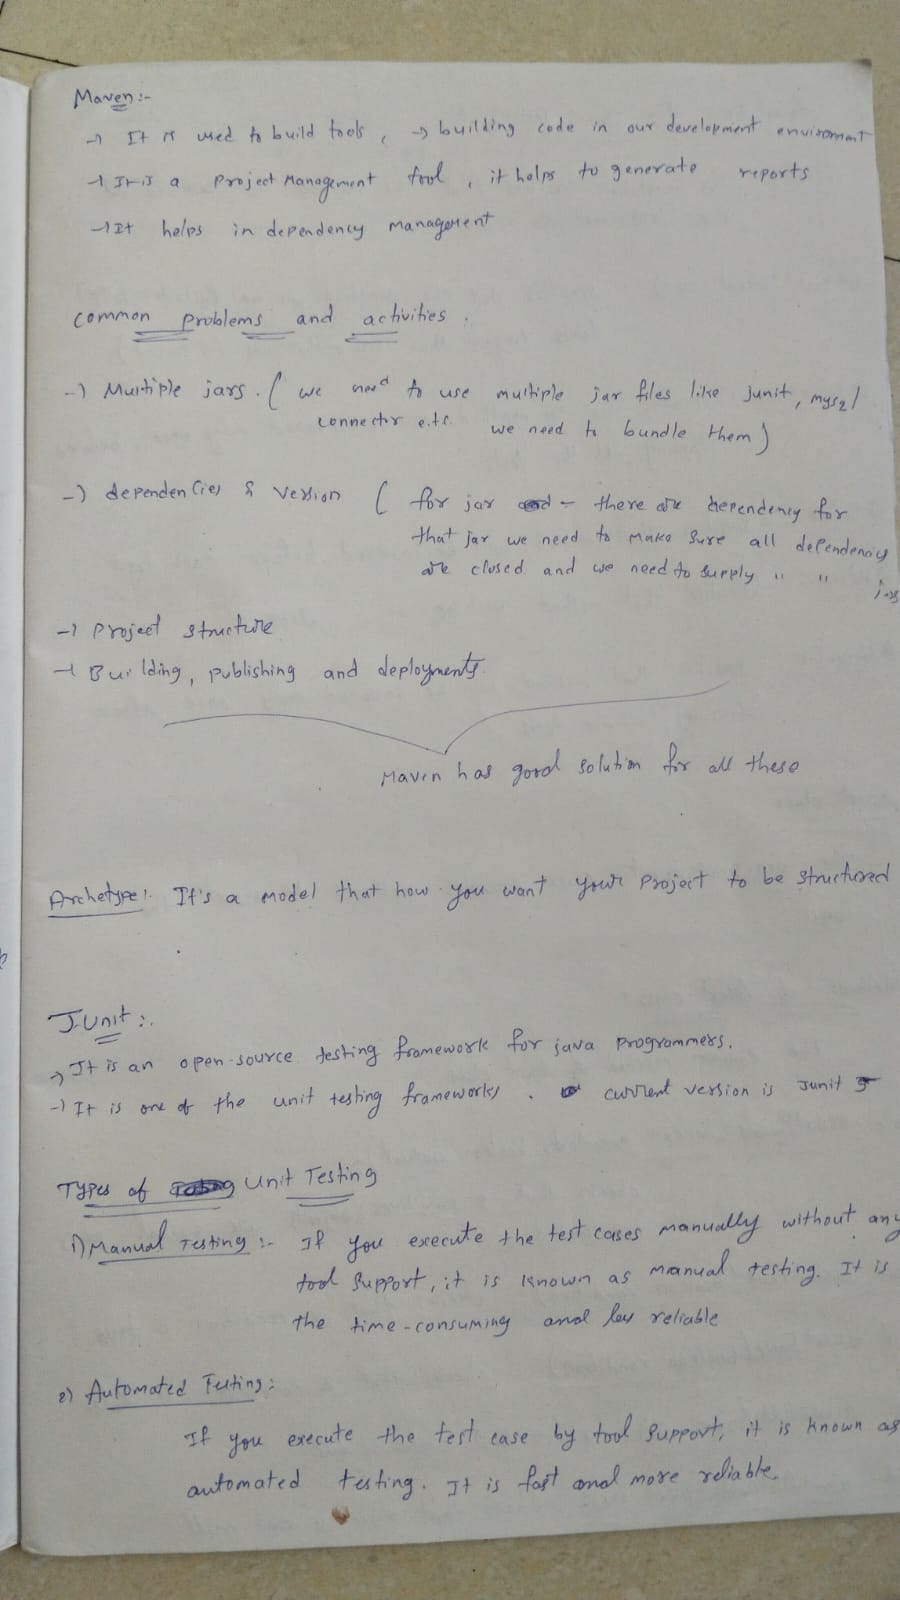 Maven :-
→ It is used to build tools, → building code in our development environment
→ It is a Project Management tool, it helps to generate reports
→ It helps in dependency management
common problems and activities.
→ Multiple jars. ( we need to use multiple jar files like junit, mysql
connector e.t.c. we need to bundle them )
→ dependencies & version ( for jar - there are dependency for
that jar we need to make sure all dependency
are closed and we need to supply " " jars
→ Project structure
→ Building, publishing and deployments.
Maven has good solution for all these
Archetype :. It's a model that how you want your Project to be structured
J-Unit :.
→ It is an open-source testing framework for java programmers.
→ It is one of the unit testing frameworks. current version is Junit 5
Types of Unit Testing
1) Manual Testing :- If you execute the test cases manually without any
tool support, it is known as manual testing. It is
the time-consuming and less reliable
2) Automated Testing :
If you execute the test case by tool support, it is known as
automated testing. It is fast and more reliable.